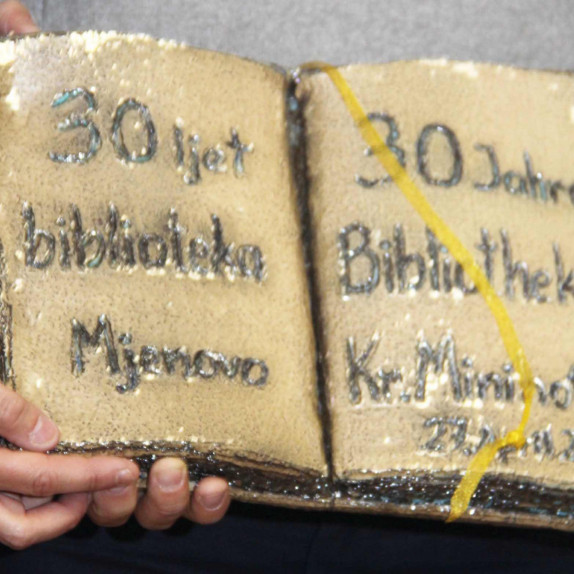 30 ljet
biblioteka
Mjenovo
30 Jahre
Bibliothek
Kr. Miniho